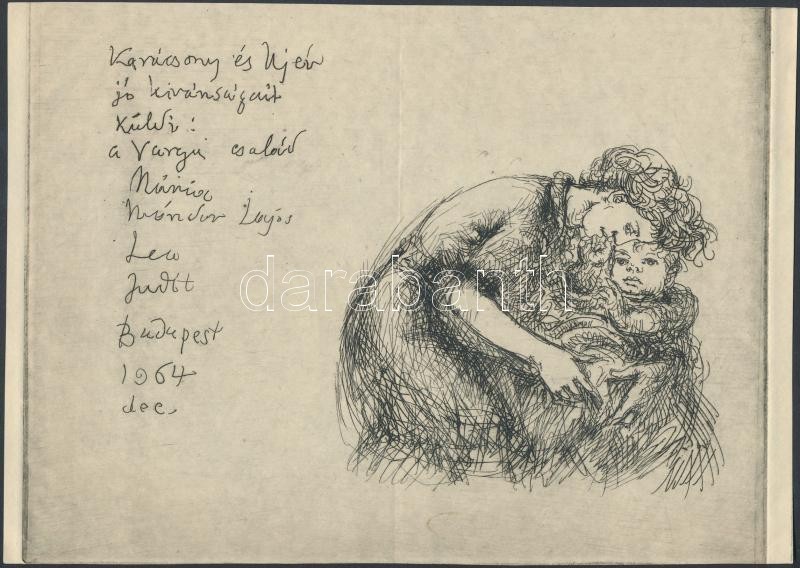 Karácsony és Ujév
jó kivánságait
küldi:
a Varga család
Mária
Nándor Lajos
Lea
Judit
Budapest
1964
dec.
darabanth